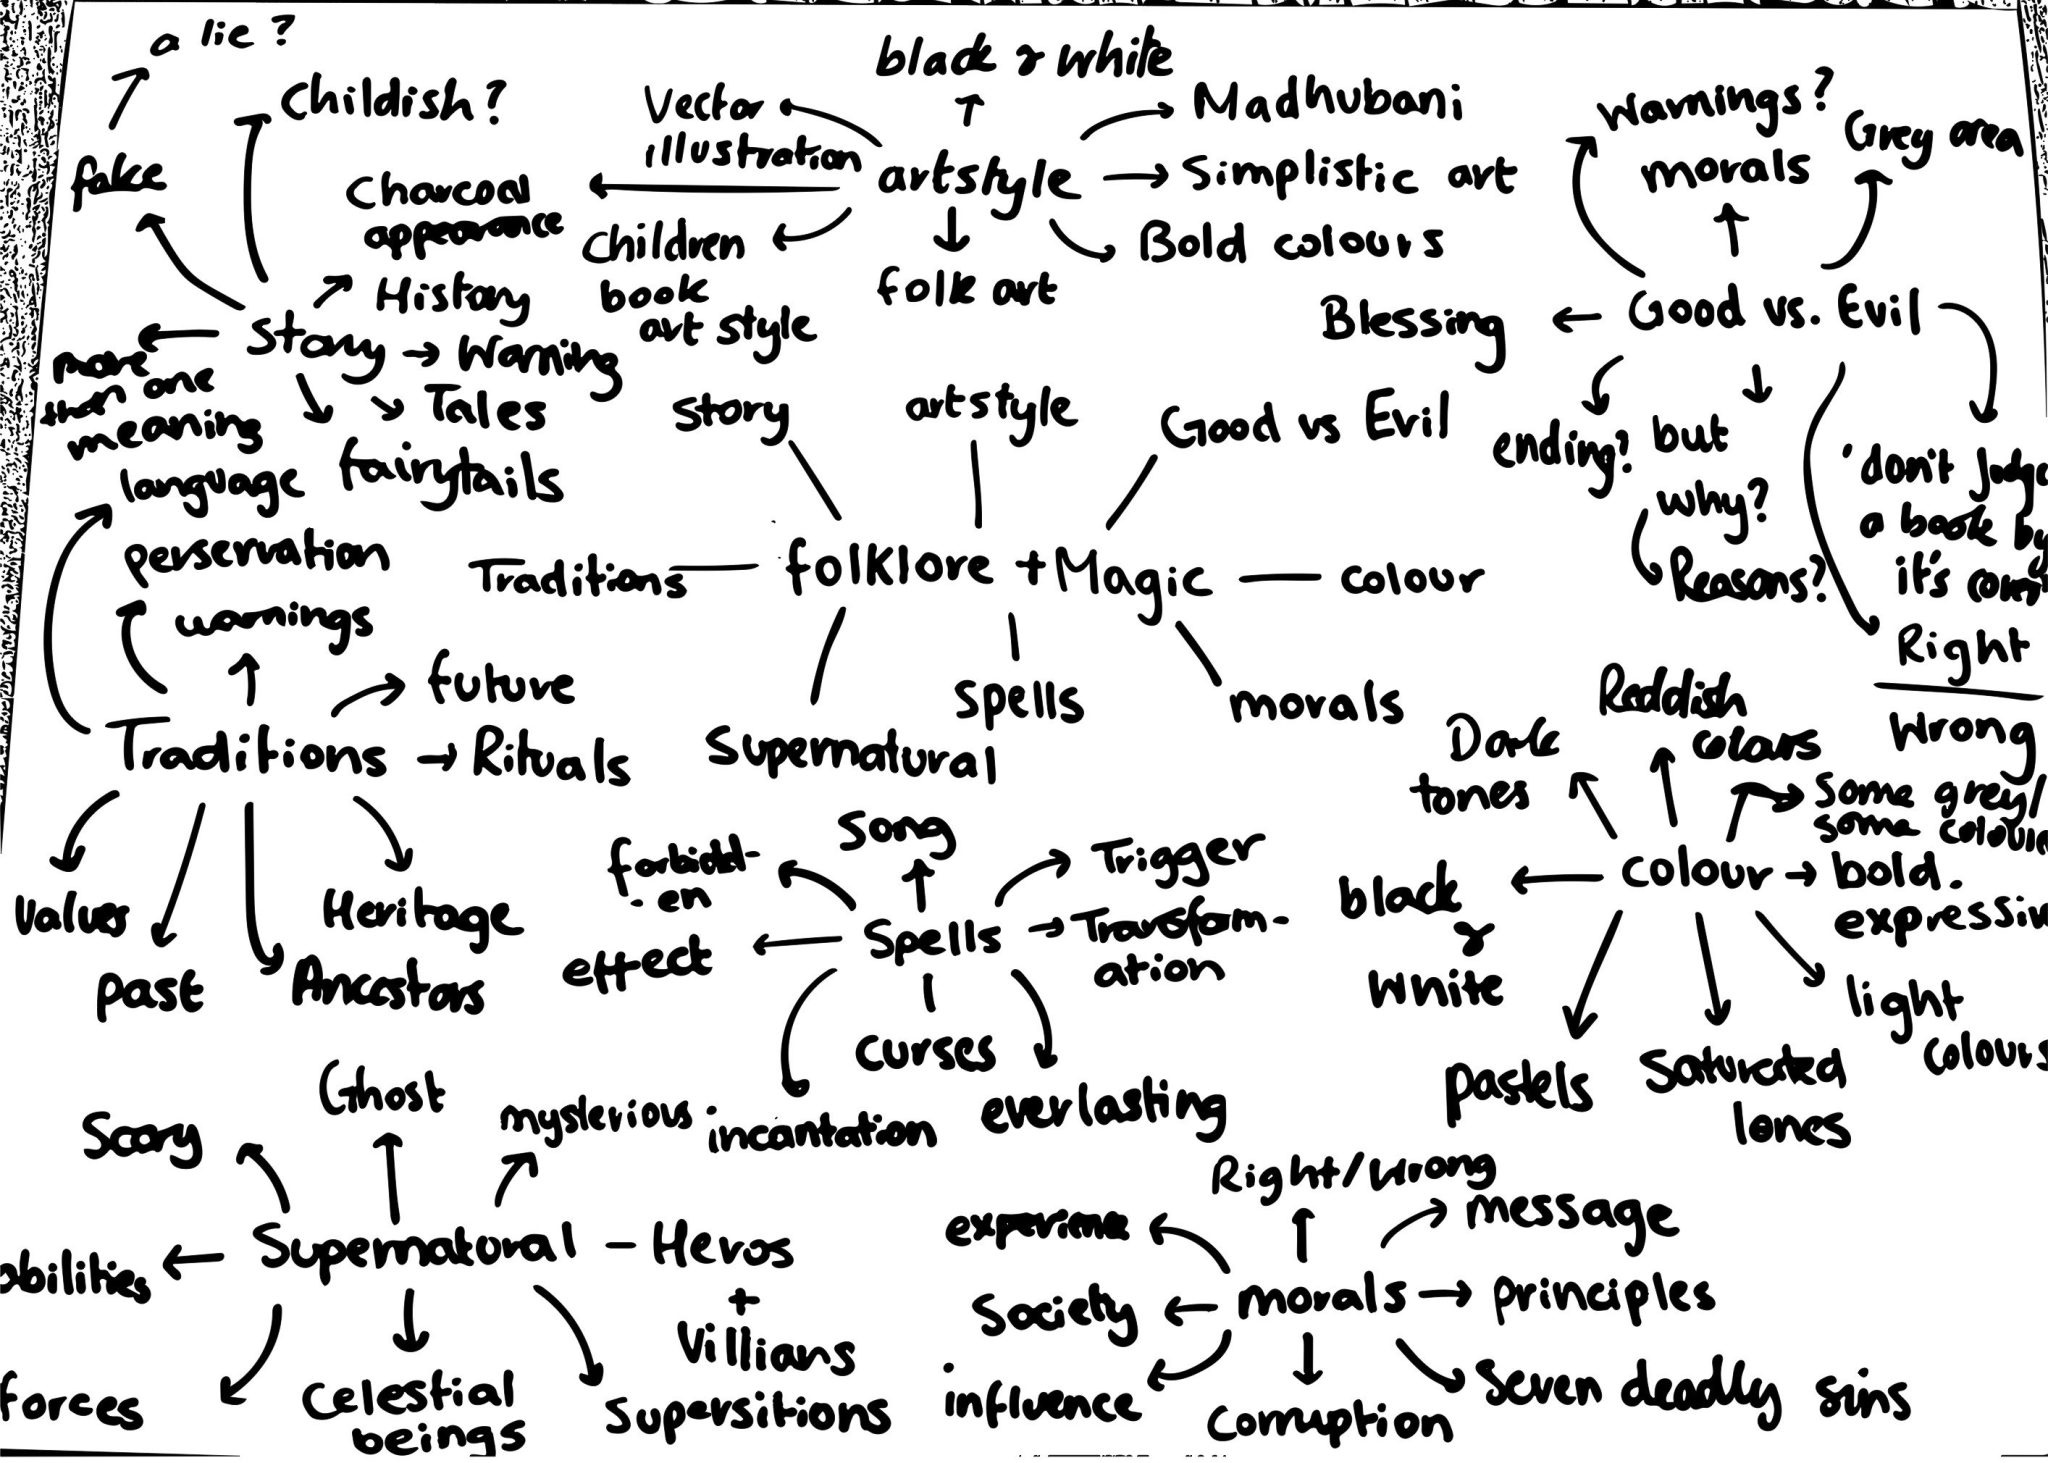 a lie?
fake
Childish?
Story
History
Warning
Tales
fairytails
more
than one
meaning
black & white
Vector
illustration
Charcoal
appearance
Children
book
art style
artstyle
Madhubani
Simplistic art
Bold colours
folk art
Warnings?
morals
Grey area
Blessing
Good vs. Evil
ending?
but
why?
Reasons?
'don't Judge
a book by
it's cover
Right
Wrong
story
artstyle
Good vs Evil
Traditions
folklore + Magic
colour
Supernatural
spells
morals
language
perservation
warnings
future
Traditions
Rituals
Values
past
Ancestors
Heritage
forbidd-
-en
Song
Trigger
effect
Spells
Transform-
ation
incantation
curses
everlasting
Dark
tones
Reddish
colours
some grey/
some colour
black
&
white
colour
bold.
expressiv
pastels
Saturated
tones
light
colours
Scary
Ghost
mysterious
abilities
Supernatural
Heros
+
Villians
forces
Celestial
beings
Supersitions
Right/Wrong
experience
message
Society
morals
principles
influence
Corruption
Seven deadly sins